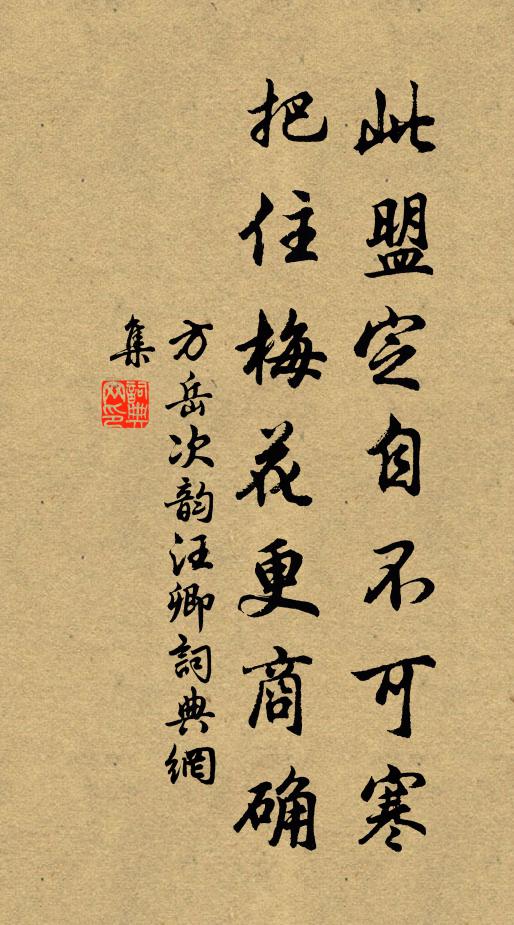 此盟定自不可寒
把住梅花更商确
方岳次韵汪卿詞典網
集
詞典網印